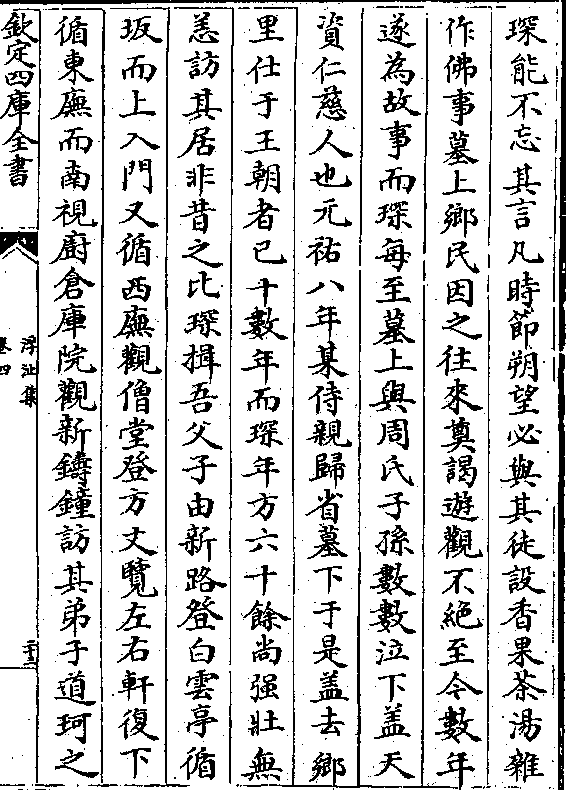 琛能不忘其言凡時節朔望必與其徒設香果茶湯雜
作佛事墓上鄉民因之往來奠謁遊觀不絕至今數年
遂為故事而琛每至墓上與周氏子孫數數泣下盖天
資仁慈人也元祐八年某侍親歸省墓下于是盖去鄉
里仕于王朝者已十數年而琛年方六十餘尚强壯無
恙訪其居非昔之比琛揖吾父子由新路登白雲亭循
坂而上入門又循西廡觀僧堂登方丈覽左右軒復下
循東廡而南視廚倉庫院觀新鑄鐘訪其弟子道珂之
欽定四庫全書
浮沚集
卷四